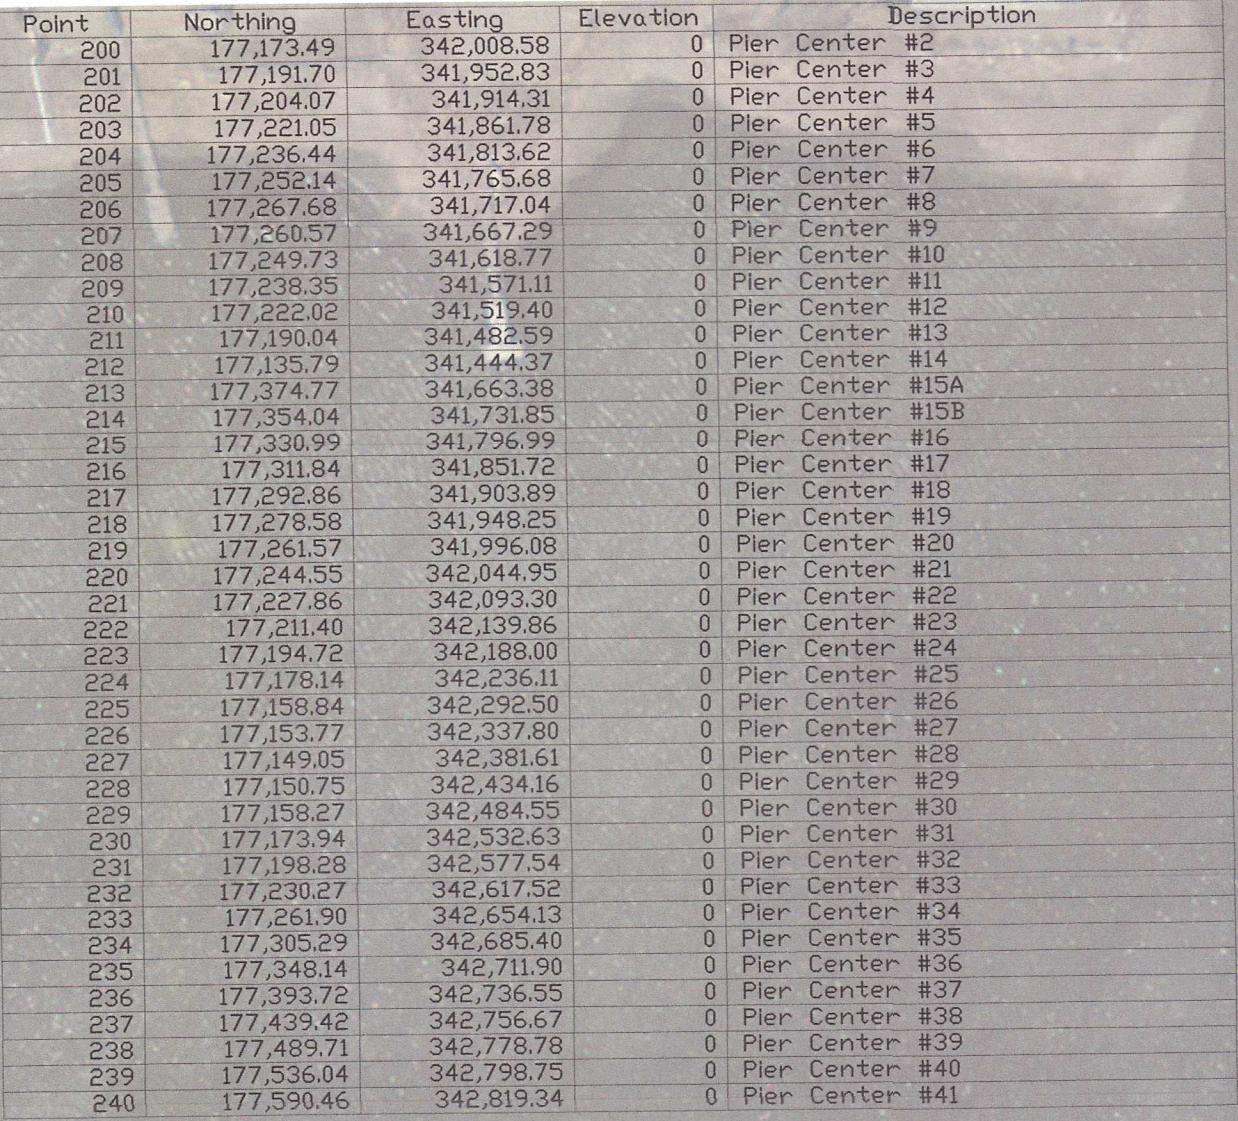 Point Northing Easting Elevation Description
200 177,173.49 342,008.58 0 Pier Center #2
201 177,191.70 341,952.83 0 Pier Center #3
202 177,204.07 341,914.31 0 Pier Center #4
203 177,221.05 341,861.78 0 Pier Center #5
204 177,236.44 341,813.62 0 Pier Center #6
205 177,252.14 341,765.68 0 Pier Center #7
206 177,267.68 341,717.04 0 Pier Center #8
207 177,260.57 341,667.29 0 Pier Center #9
208 177,249.73 341,618.77 0 Pier Center #10
209 177,238.35 341,571.11 0 Pier Center #11
210 177,222.02 341,519.40 0 Pier Center #12
211 177,190.04 341,482.59 0 Pier Center #13
212 177,135.79 341,444.37 0 Pier Center #14
213 177,374.77 341,663.38 0 Pier Center #15A
214 177,354.04 341,731.85 0 Pier Center #15B
215 177,330.99 341,796.99 0 Pier Center #16
216 177,311.84 341,851.72 0 Pier Center #17
217 177,292.86 341,903.89 0 Pier Center #18
218 177,278.58 341,948.25 0 Pier Center #19
219 177,261.57 341,996.08 0 Pier Center #20
220 177,244.55 342,044.95 0 Pier Center #21
221 177,227.86 342,093.30 0 Pier Center #22
222 177,211.40 342,139.86 0 Pier Center #23
223 177,194.72 342,188.00 0 Pier Center #24
224 177,178.14 342,236.11 0 Pier Center #25
225 177,158.84 342,292.50 0 Pier Center #26
226 177,153.77 342,337.80 0 Pier Center #27
227 177,149.05 342,381.61 0 Pier Center #28
228 177,150.75 342,434.16 0 Pier Center #29
229 177,158.27 342,484.55 0 Pier Center #30
230 177,173.94 342,532.63 0 Pier Center #31
231 177,198.28 342,577.54 0 Pier Center #32
232 177,230.27 342,617.52 0 Pier Center #33
233 177,261.90 342,654.13 0 Pier Center #34
234 177,305.29 342,685.40 0 Pier Center #35
235 177,348.14 342,711.90 0 Pier Center #36
236 177,393.72 342,736.55 0 Pier Center #37
237 177,439.42 342,756.67 0 Pier Center #38
238 177,489.71 342,778.78 0 Pier Center #39
239 177,536.04 342,798.75 0 Pier Center #40
240 177,590.46 342,819.34 0 Pier Center #41